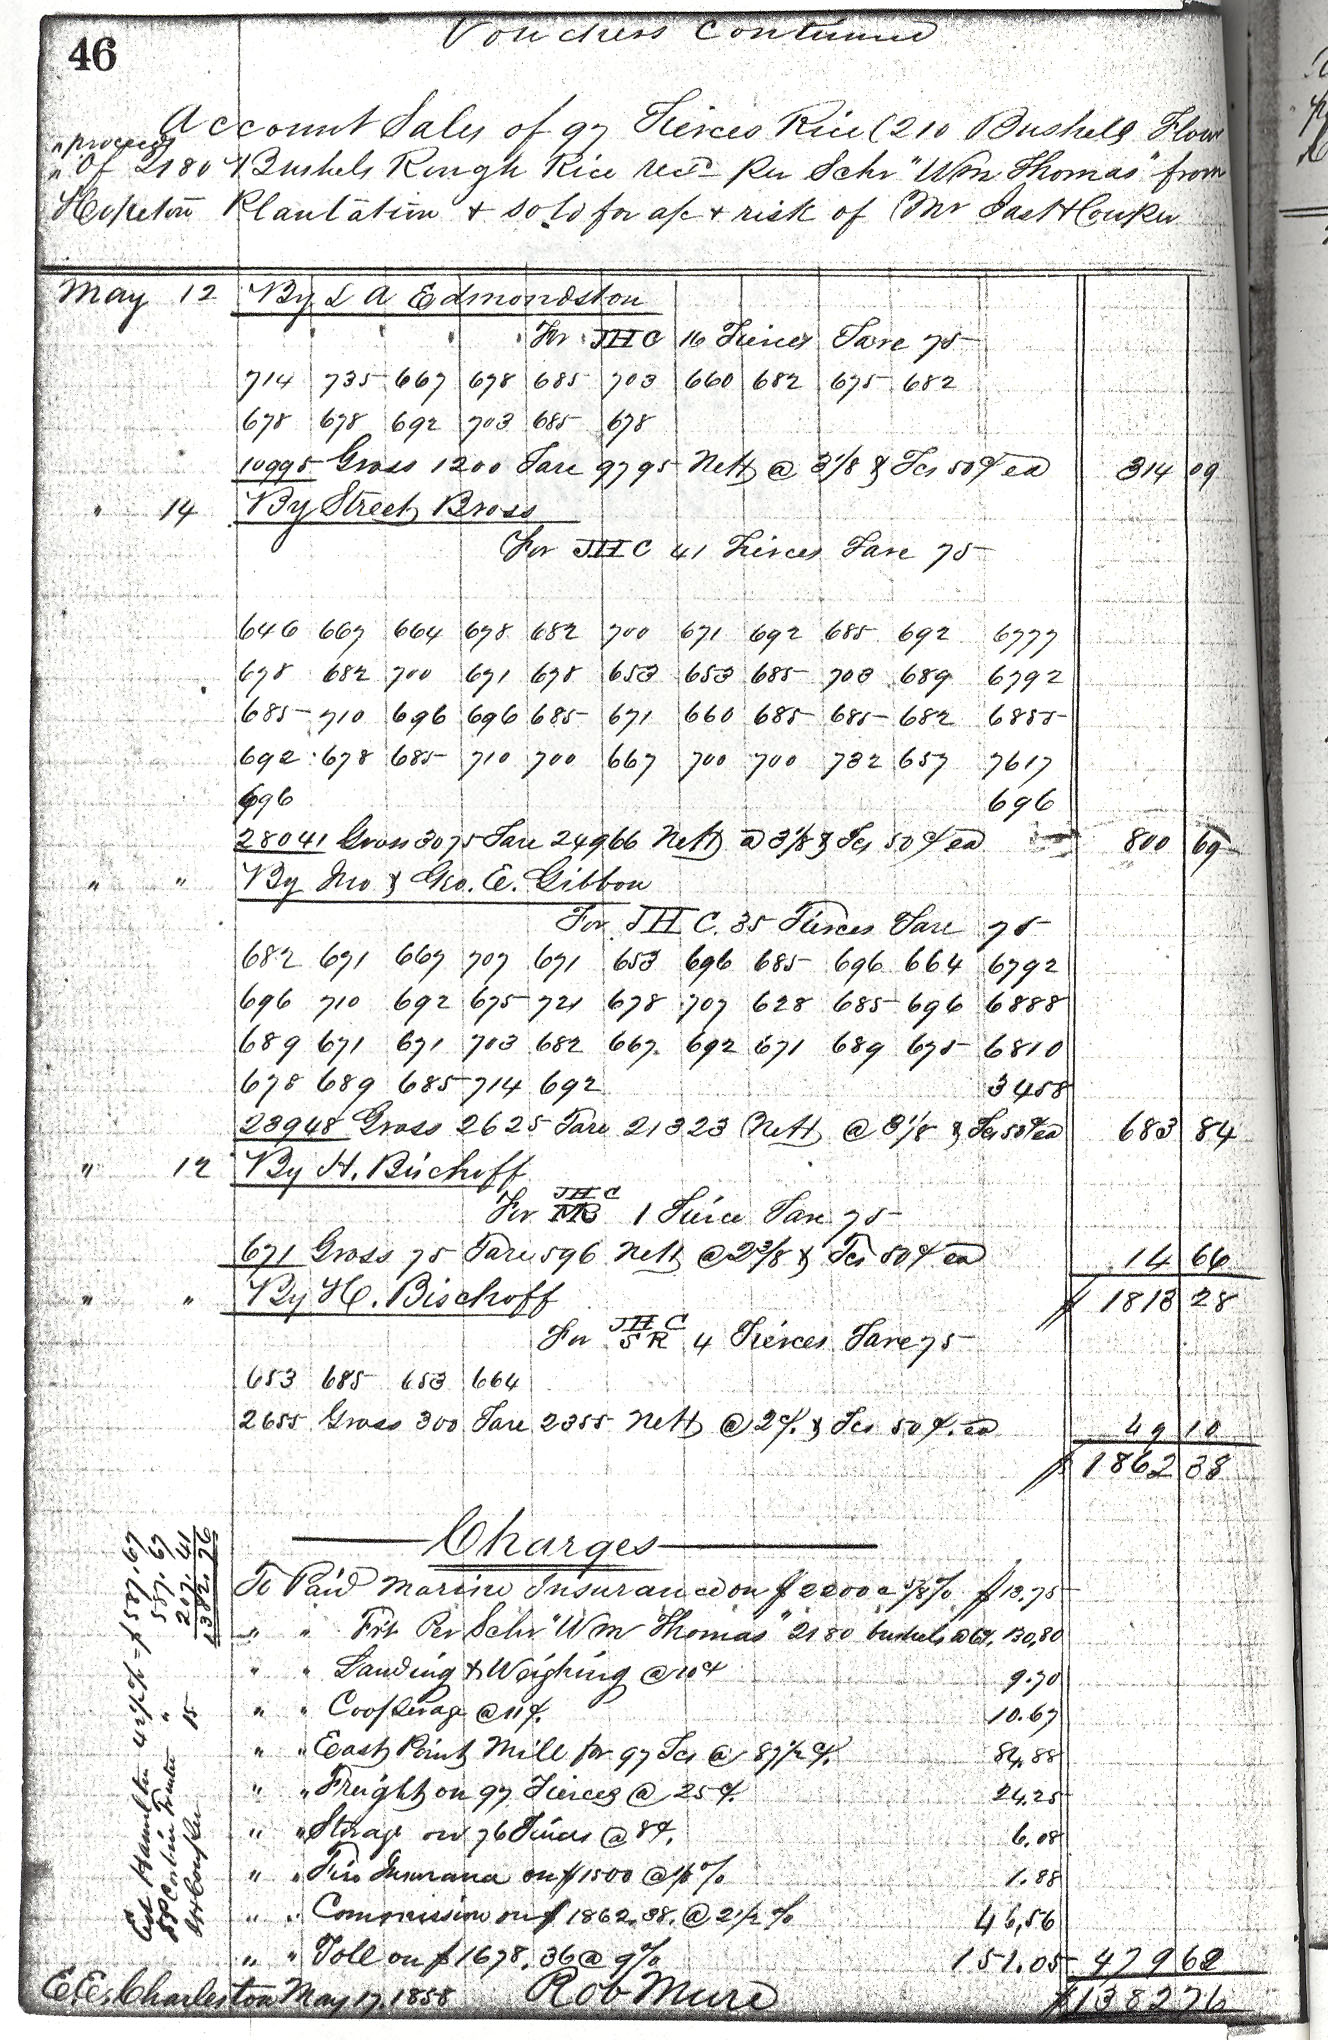 46
Vouchers Continued
Account Sales of 97 Tierces Rice (210 Bushels Flour
" proceeds
" Of 2180 Bushels Rough Rice recd per Schr "Wm Thomas" from
Hopeton Plantation & sold for a/c & risk of Mr Jas H Couper
May 12 By L A Edmondston
For JHC 16 Tierces Tare 75
714 735 667 678 685 703 660 682 675 682
678 678 692 703 685 678
10995 Gross 1200 Tare 9795 Nett @ 3 1/8 & Tcs 50¢ ea 314 09
" 14 By Street Bross
For JHC 41 Tierces Tare 75
646 667 664 678 682 700 671 692 685 692 6777
678 682 700 671 678 653 653 685 703 689 6792
685 710 696 696 685 671 660 685 685 682 6855
692 678 685 710 700 667 700 700 732 657 7617
696 696
28041 Gross 3075 Tare 24966 Nett @ 3 1/8 & Tcs 50¢ ea 800 69
" " By Jno & Geo. E. Gibbon
For JHC. 35 Tierces Tare 75
682 671 667 707 671 653 696 685 696 664 6792
696 710 692 675 721 678 707 628 685 696 6888
689 671 671 703 682 667 692 671 689 675 6810
678 689 685 714 692 3458
23948 Gross 2625 Tare 21323 Nett @ 3 1/8 & Tcs 50¢ ea 683 84
" 12 By H. Bischoff
For JHC
MB 1 Tierce Tare 75
671 Gross 75 Tare 596 Nett @ 2 3/8 & Tcs 50¢ ea 14 66
" " By H. Bischoff $ 1813 28
For JHC
SR 4 Tierces Tare 75
653 685 653 664
2655 Gross 300 Tare 2355 Nett @ 2¢. & Tcs 50¢. ea 49 10
$ 1862 38
Charges
To Paid Marine Insurance on $2200 @ 5/8% $13.75
" " Frt Per Schr "Wm Thomas" 2180 bushels @ 6¢. 130,80
" " Landing & Weighing @ 10¢ 9.70
" " Cooperage @ 11¢. 10.67
" " East Point Mill for 97 Tcs @ 87 1/2 ¢. 84,88
" " Freight on 97 Tierces @ 25¢. 24.25
" " Storage on 76 Tierces @ 8¢. 6.08
" " Fire Insurance on $1500 @ 1/8% 1.88
" " Commission on $1862.38. @ 2 1/2 % 46,56
" " Toll on $1678.36 @ 9% 151.05 479 62
E.E. Charleston May 17. 1858 Rob Mure $1382 76
Est Hamilton 42 1/2 % = $587.67
" 587.67
JH Couper 15 207.41
1382.76